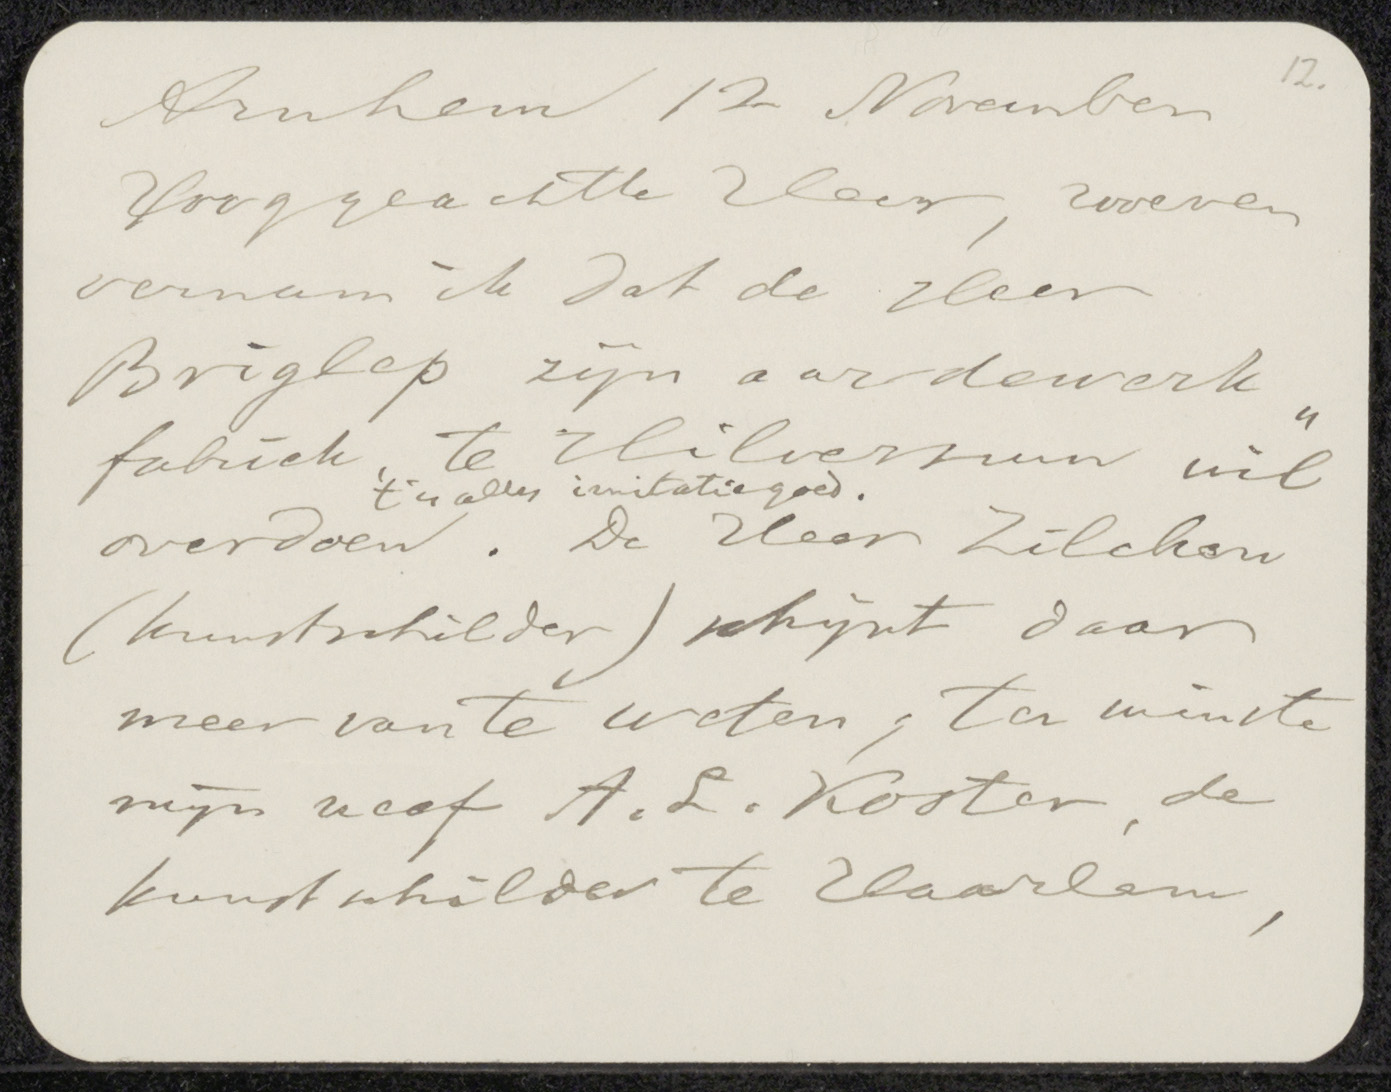 12.
Arnhem 12 November
Hooggeachte Heer, zooeven
vernam ik dat de Heer
Briglep zijn aardewerk
fabriek, te Hilversum "wil
't is alles imitatiegoed.
overdoen. De Heer Zilcken
(kunstschilder) schijnt daar
meer van te weten; ten minste
mijn neef A. L. Koster, de
kunstschilder te Haarlem,